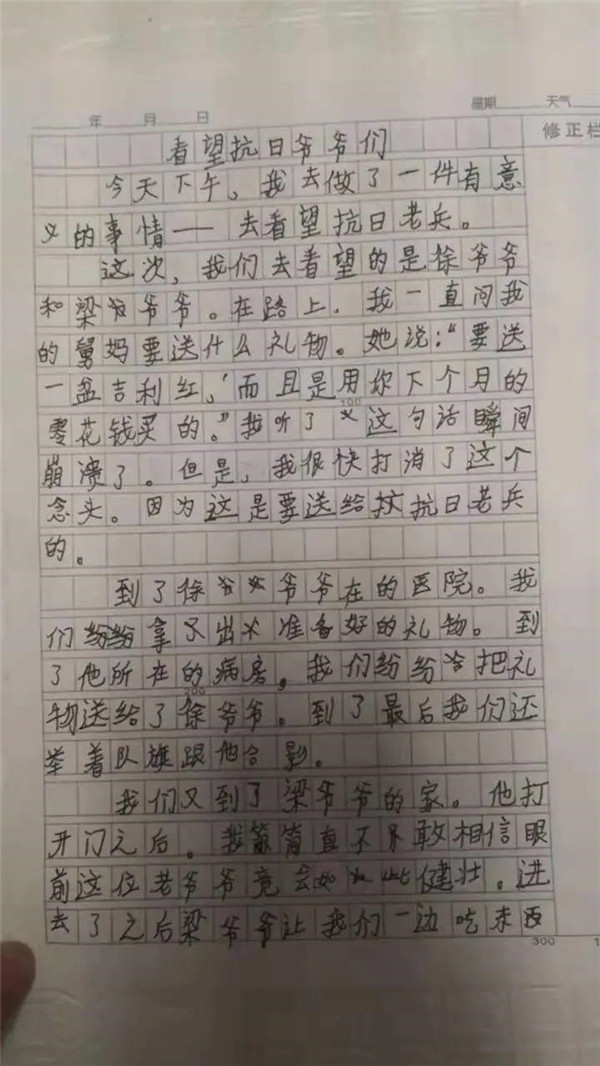 年 月 日 星期 天气
修正栏
看望抗日爷爷们
今天下午，我去做了一件有意
义的事情——去看望抗日老兵。
这次，我们去看望的是徐爷爷
和梁爷爷。在路上，我一直问我
的舅妈要送什么礼物。她说：“要送
一盆吉利红，而且是用你下个月的
100
零花钱买的。”我听了这句话瞬间
崩溃了。但是，我很快打消了这个
念头。因为这是要送给抗日老兵
的。
到了徐爷爷在的医院。我
们纷纷拿出准备好的礼物。到
了他所在的病房，我们纷纷把礼
200
物送给了徐爷爷。到了最后我们还
举着队旗跟他合影。
我们又到了梁爷爷的家。他打
开门之后。我简直不敢相信眼
前这位老爷爷竟会如此健壮。进
去了之后梁爷爷让我们一边吃东西
300